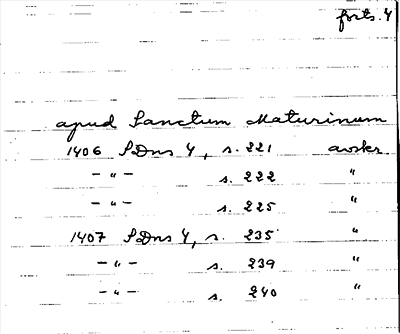 forts. 4
apud Sanctum Maturinum
1406 SDns 4, s. 221 avskr
- " - s. 222 "
- " - s. 225 "
1407 SDns 4, s. 235 "
- " - s. 239 "
- " - s. 240 "